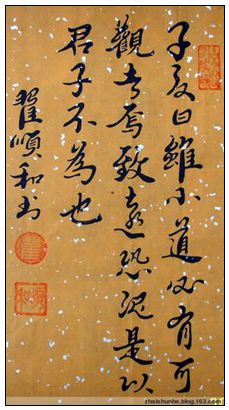 子夏曰雖小道必有可
觀者焉致遠恐泥是以
君子不為也
翟順和书
zhaishunhe.blog.163.com